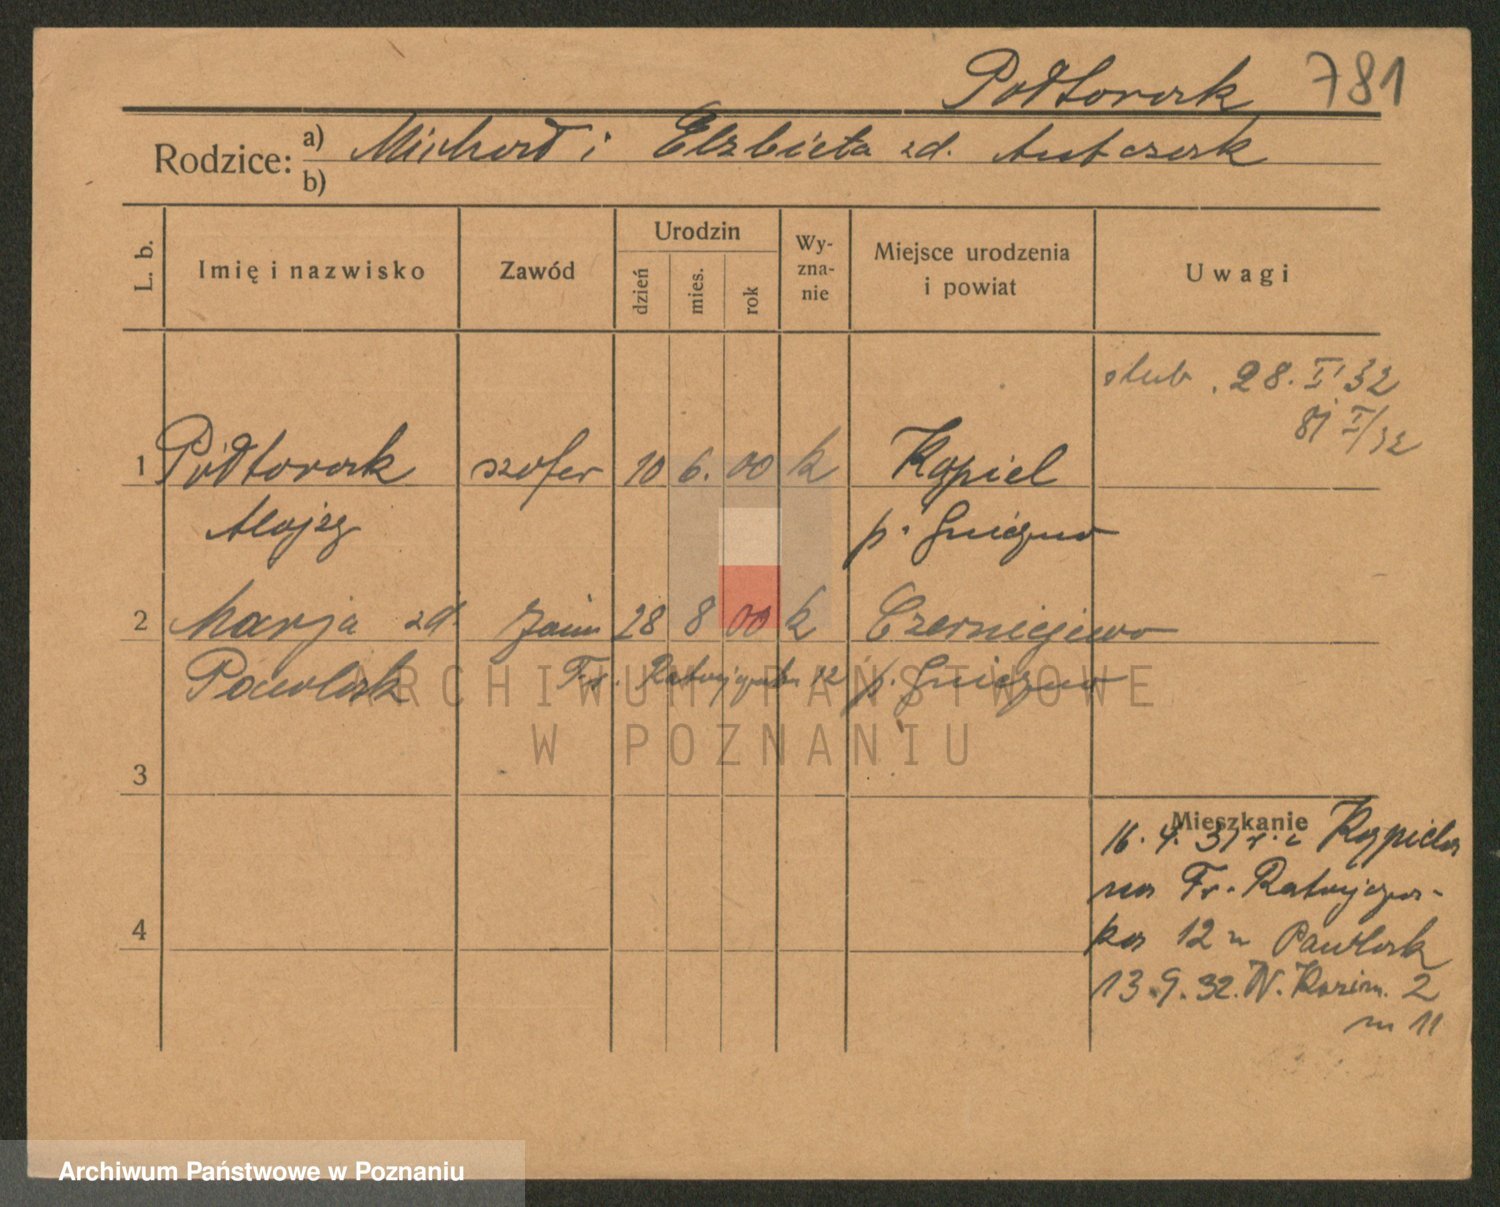 Półtorak 781
Rodzice: a) Michał i Elżbieta zd. Antczak
b)
L. b. Imię i nazwisko Zawód Urodzin dzień mies. rok Wyznanie Miejsce urodzenia i powiat Uwagi
ślub. 28. I 32
I/32
1 Półtorak szofer 10 6. 00 k Kąpiel
Alojzy p. Gniezno
2 Marja zd. 28 8 00 k Czerniejewo
Pawlak Fr. Ratajczaka 12 p. Gniezno
ARCHIWUM PAŃSTWOWE
W POZNANIU
3
Mieszkanie
16. 4. 31 r. z Kąpiela
na Fr. Ratajcza-
ka 12 u Pawlak
4
13.9.32. N. Kazim. 2
m 11
Archiwum Państwowe w Poznaniu